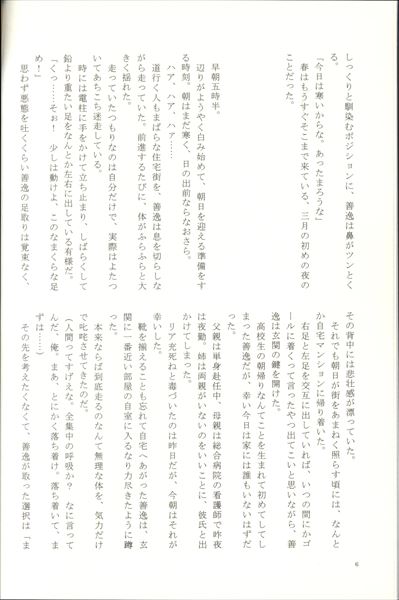 しっくりと馴染むポジションに、善逸は鼻がツンとく
る。
「今日は寒いからな。あったまろうな」
春はもうすぐそこまで来ている、三月の初めの夜の
ことだった。
早朝五時半。
辺りがようやく白み始めて、朝日を迎える準備をす
る時刻。朝はまだ寒く、日の出前ならなおさら。
ハア、ハア、ハァ……
道行く人もまばらな住宅街を、善逸は息を切らしな
がら走っていた。前進するたびに、体がふらふらと大
きく揺れた。
走っていたつもりなのは自分だけで、実際はよたつ
いてあちこち迷走している。
時には電柱に手をかけて立ち止まり、しばらくして
鉛より重たい足をなんとか左右に出している有様だ。
「くっ……そぉ!　少しは動けよ、このなまくらな足
め!」
思わず悪態を吐くくらい善逸の足取りは覚束なく、
その背中には悲壮感が漂っていた。
それでも朝日が街をあまねく照らす頃には、なんと
か自宅マンションに帰り着いた。
右足と左足を交互に出していれば、いつの間にかゴ
ールに着くって言ったやつ出てこいと思いながら、善
逸は玄関の鍵を開けた。
高校生の朝帰りなんてことを生まれて初めてしてし
まった善逸だが、幸い今日は家には誰もいないはずだ
った。
父親は単身赴任中、母親は総合病院の看護師で昨夜
は夜勤。姉は両親がいないのをいいことに、彼氏と出
かけてしまった。
リア充死ねと毒づいたのは昨日だが、今朝はそれが
幸いした。
靴を揃えることも忘れて自宅へあがった善逸は、玄
関に一番近い部屋の自室に入るなり力尽きたように蹲
った。
本来ならば到底走るのなんて無理な体を、気力だけ
で叱咤させてきたのだ。
(人間ってすげえな。全集中の呼吸か?　なに言って
んだ、俺。まあ、とにかく落ち着け。落ち着いて、ま
ずは……)
その先を考えたくなくて、善逸が取った選択は「ま
6